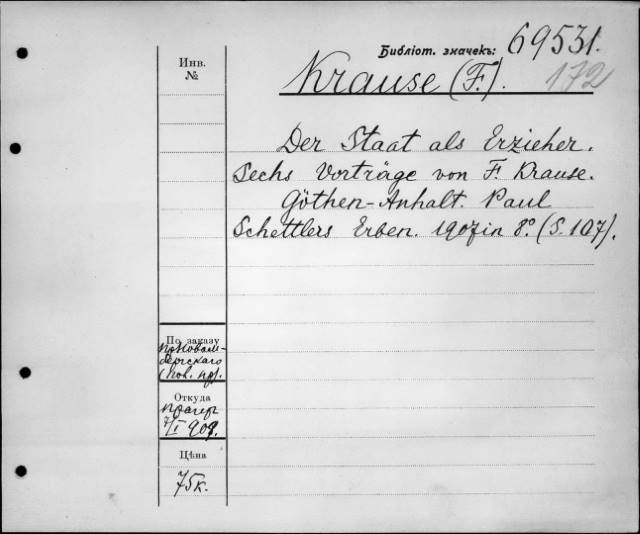 Библіот. значекъ: 69531.
172
Инв.
№
Krause (F.).
Der Staat als Erzieher.
Sechs Vorträge von F. Krause.
Göthen-Anhalt. Paul
Schettlers Erben. 1907 in 8º. (S. 107).
По заказу
Откуда
7/I 909.
Цѣна
75к.